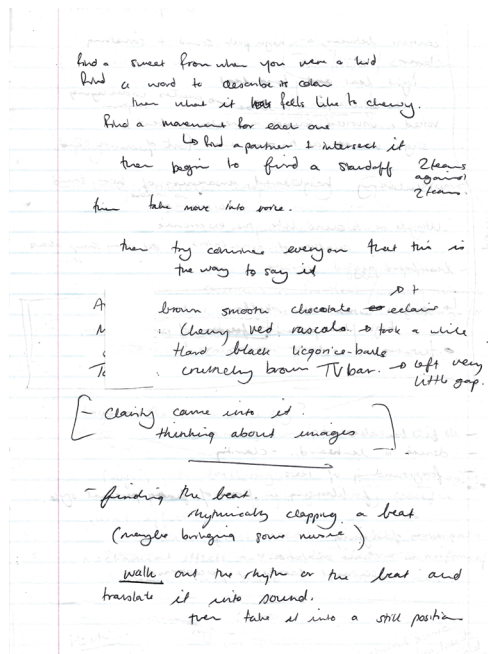 find a sweet from when you were a kid
find a word to describe its colour
then what it feels like to chewy.
find a movement for each one
↳ find a partner + intersect it
then begin to find a standoff 2 teams against 2 teams.
then take move into voice.
then try convince everyone that this is
the way to say it
A brown smooth chocolate eclairs
M : Chewy red rascals → took a while
: Hard black licqorice-balls
To : crunchy brown TV bar. → left very little gap.
[- Clarity came into it.
thinking about images]
- finding the beat.
rhythmically clapping a beat
(maybe bringing some music)
walk out the rhythm or the beat and
translate it into sound.
then take it into a still position